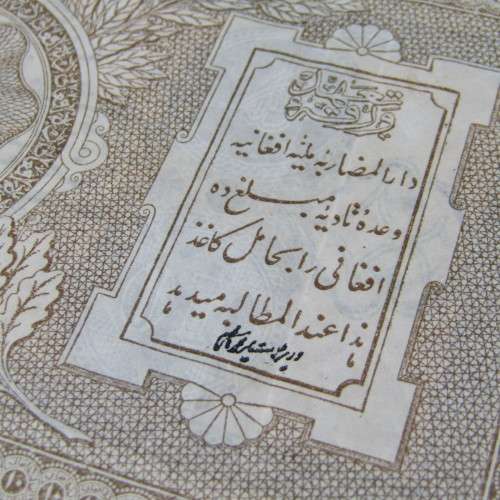 دارالمضاربهٔ ملیهٔ افغانیه
وعدهٔ تادیهٔ مبلغ ده
افغانی را بحامل کاغذ
هذا عندالمطالبه میدهد